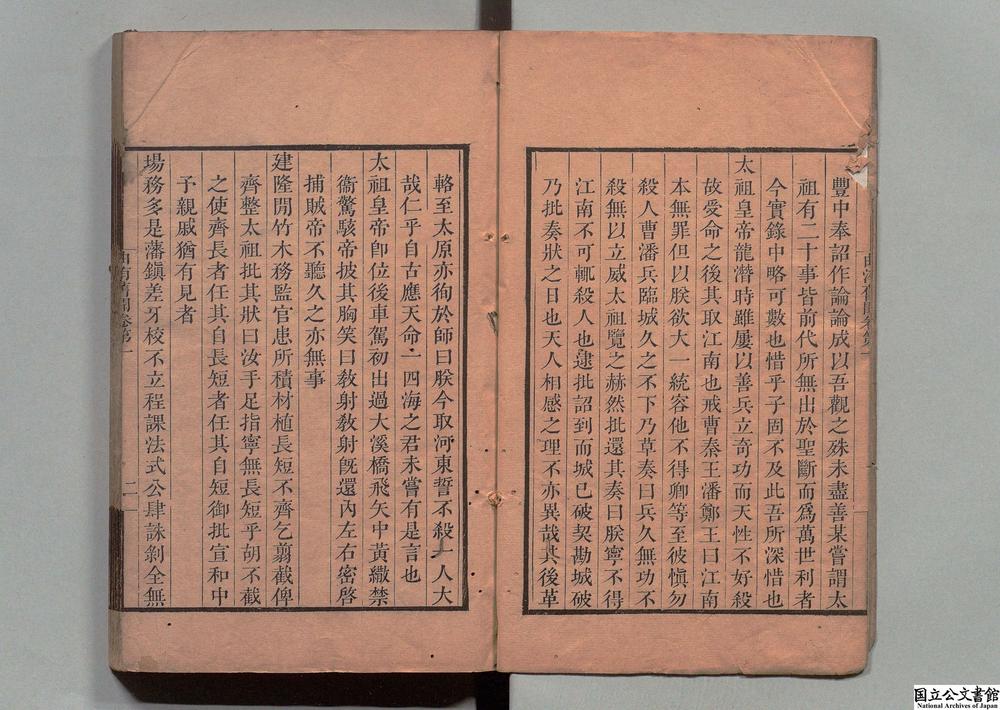 豐中奉詔作論論成以吾觀之殊未盡善某嘗謂太
祖有二十事皆前代所無出於聖斷而爲萬世利者
今實錄中略可數也惜乎子固不及此吾所深惜也
太祖皇帝龍潛時雖屢以善兵立奇功而天性不好殺
故受命之後其取江南也戒曹秦王潘鄭王曰江南
本無罪但以朕欲大一統容他不得卿等至彼愼勿
殺人曹潘兵臨城久之不下乃草奏曰兵久無功不
殺無以立威太祖覽之赫然批還其奏曰朕寧不得
江南不可輒殺人也逮批詔到而城已破契勘城破
乃批奏狀之日也天人相感之理不亦異哉其後革
輅至太原亦徇於師曰朕今取河東誓不殺一人大
哉仁乎自古應天命一四海之君未嘗有是言也
太祖皇帝卽位後車駕初出過大溪橋飛矢中黃繖禁
衞驚駭帝披其胸笑曰敎射敎射旣還內左右密啓
捕賊帝不聽久之亦無事
建隆閒竹木務監官患所積材植長短不齊乞翦截俾
齊整太祖批其狀曰汝手足指寧無長短乎胡不截
之使齊長者任其自長短者任其自短御批宣和中
予親戚猶有見者
場務多是藩鎭差牙校不立程課法式公肆誅剝全無
曲洧舊聞卷第一
二
国立公文書館
National Archives of Japan